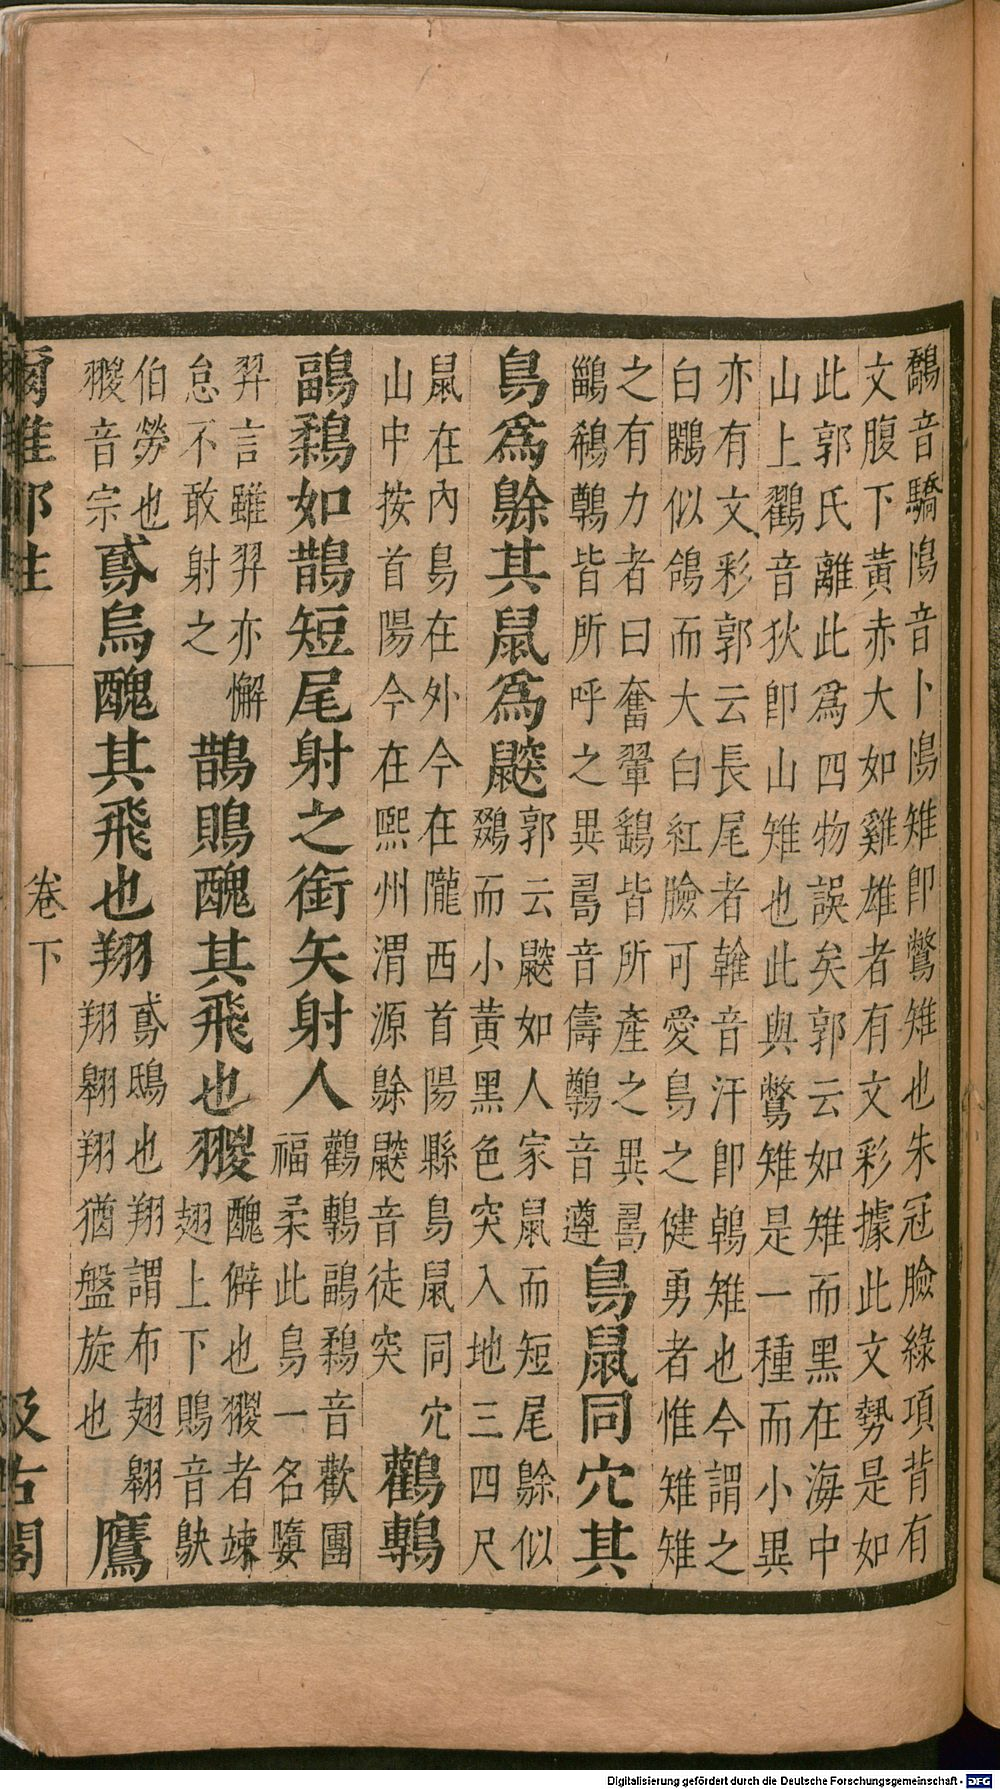 鷮音驕鳪音卜鳪雉即鷩雉也朱冠臉綠項背有
文腹下黃赤大如雞雄者有文彩據此文勢是如
此郭氏離此爲四物誤矣郭云如雉而黑在海中
山上鸐音狄即山雉也此與鷩雉是一種而小異
亦有文彩郭云長尾者雗音汗即鶾雉也今謂之
白鷴似鴿而大白紅臉可愛鳥之健勇者惟雉雉
之有力者曰奮翬鷂皆所產之異𠷎
鶅鵗鷷皆所呼之異𠷎音儔鷷音遵
鳥鼠同穴其
鳥爲鵌其鼠爲鼵
郭云鼵如人家鼠而短尾鵌似
鵽而小黃黑色突入地三四尺
鼠在內鳥在外今在隴西首陽縣鳥鼠同穴
山中按首陽今在熙州渭源鵌鼵音徒突
鸛鷒
鶝鶔如鵲短尾射之銜矢射人
鸛鷒鶝鶔音歡團
福柔此鳥一名
羿言雖羿亦懈
怠不敢射之
鵲鵙醜其飛也翪
醜僻也翪者竦
翅上下鵙音鴃
伯勞也
翪音宗
鳶烏醜其飛也翔
鳶鴟也翔謂布翅翱
翔翱翔猶盤旋也
鷹
爾雅鄭注
卷下
汲古閣
Digitalisierung gefördert durch die Deutsche Forschungsgemeinschaft - DFG